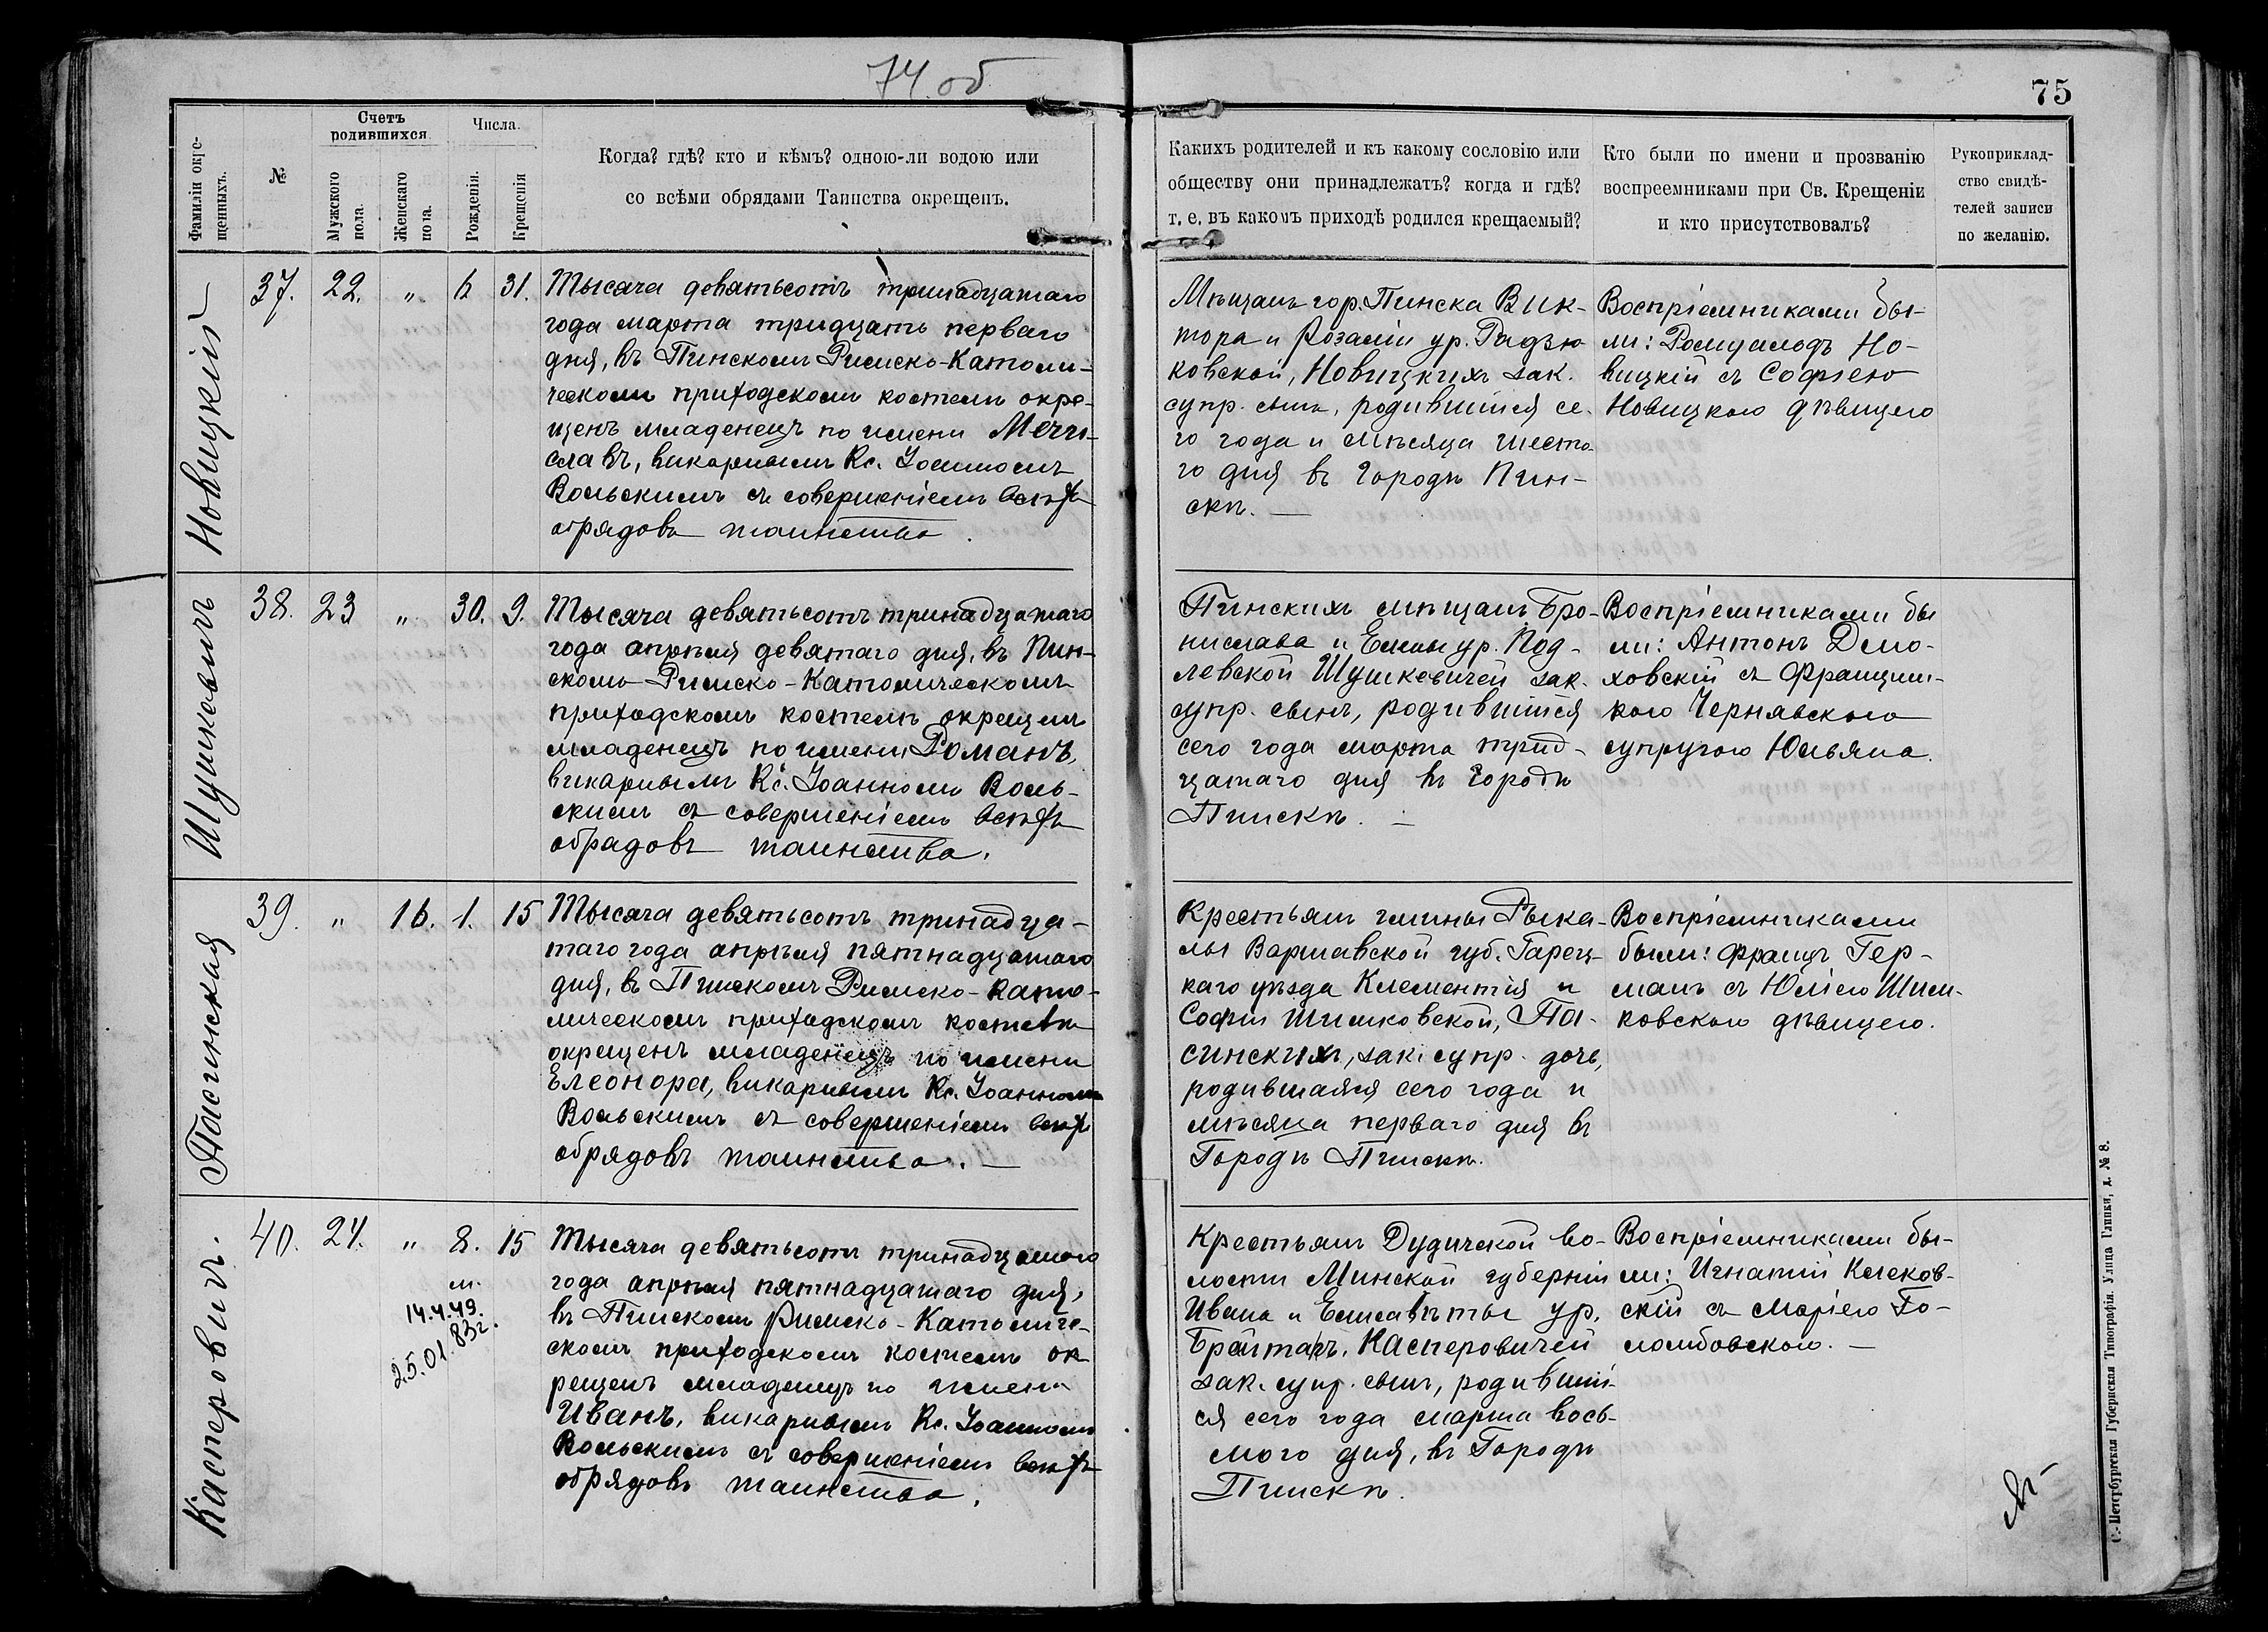 74 об
75
Фамиліи окре-
щенныхъ.
№
Счетъ
родившихся.
Мужского
пола.
Женскаго
пола.
Числа.
Рожденія.
Крещенія
Когда? гдѣ? кто и кѣмъ? одною-ли водою или
со всѣми обрядами Таинства окрещенъ.
Какихъ родителей и къ какому сословію или
обществу они принадлежатъ? когда и гдѣ?
т. е. въ какомъ приходѣ родился крещаемый?
Кто были по имени и прозванію
воспреемниками при Св. Крещеніи
и кто присутствовалъ?
Рукоприклад-
ство свидѣ-
телей записи
по желанію.
Новицкій
37. 22. „ 6 31.
Тысяча девятьсотъ тринадцатаго
года марта тридцать перваго
дня, въ Пинскомъ Римско-Католи-
ческомъ приходскомъ костелѣ окре-
щенъ младенецъ по имени Мечи-
славъ, викарнымъ Кс. Іоанномъ
Вольскимъ съ совершеніемъ всѣхъ
обрядовъ таинства.
Мѣщанъ гор. Пинска Вик-
тора и Розаліи ур. Радзю
ковской, Новицкихъ зак.
супр. сынъ, родившійся се-
го года и мѣсяца шесто-
го дня въ городѣ Пин-
скѣ. —
Воспріемниками бы-
ли: Ромуальдъ Но-
вицкій съ Софіею
Новицкою дѣвицею
Шушкевичъ
38. 23 „ 30. 9.
Тысяча девятьсотъ тринадцатаго
года апрѣля девятаго дня, въ Пин-
скомъ Римско-Католическомъ
приходскомъ костелѣ окрещенъ
младенецъ по имени Романъ,
викарнымъ Кс. Іоанномъ Воль-
скимъ съ совершеніемъ всѣхъ
обрадовъ таинства.
Пинскихъ мѣщанъ Бро-
нислава и Елены ур. Под-
левской Шушкевичей зак.
супр. сынъ, родившійся
сего года марта трид-
цатаго дня въ городѣ
Пинскѣ. —
Воспріемниками бы
ли: Антонъ Дмо-
ховскій съ Франциш-
кою Чернявскою
супругою Юльяна.
Пасинская
39. „ 16. 1. 15
Тысяча девятьсотъ тринадца-
таго года апрѣля пятнадцатаго
дня, въ Пинскомъ Римско-Като-
лическомъ приходскомъ костелѣ
окрещенъ младенецъ по имени
Елеонора, викарнымъ Кс. Іоанномъ
Вольскимъ съ совершеніемъ всѣхъ
обрядовъ таинства. —
Крестьянъ гмины Рыка-
лы Варшавской губ. Гарец-
каго уѣзда Клементія и
Софіи Шимковской, Па-
синскихъ, зак. супр. дочь,
родившаяся сего года и
мѣсяца перваго дня въ
Городѣ Пинскѣ.
Воспріемниками
были: Францъ Гер-
манъ съ Юліею Шим-
ковскою дѣвицею.
Касперовичъ.
40. 24. „ 8. 15
м.
14.4.49.
25.01.83г.
Тысяча девятьсотъ тринадцатаго
года апрѣля пятнадцатаго дня,
въ Пинскомъ Римско-Католиче-
скомъ приходскомъ костелѣ ок
рещенъ младенецъ по имени
Иванъ, викарнымъ Кс. Іоанномъ
Вольскимъ съ совершеніемъ всѣхъ
обрядовъ таинства.
Крестьянъ Дудичской во-
лости Минской губерніи
Ивана и Елисаветы ур.
Касперовичей
зак. супр. сынъ, родивший-
ся сего года марта вось-
мого дня, въ Городѣ
Пинскѣ.
Воспріемниками бы-
ли: Игнатій Клеков-
скій съ Маріею Го-
ломбовскою. —
С.-Петербургская Губернская Типографія. Улица Глинки, д. № 8.